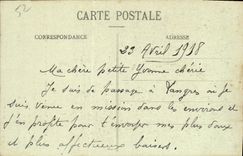 52
CARTE POSTALE
CORRESPONDANCE ADRESSE
23 Avril 1918
Ma chère petite Yvonne chérie
Je suis de passage à Langres où je
suis venu en mission dans les environs et
j'en profite pour t'envoyer mes plus doux
et plus affectueux baisers.